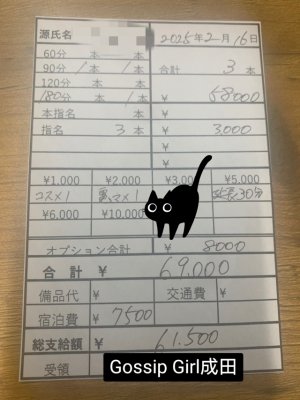 源氏名 2025年2月16日
60分 本 本
90分 1本 1本 合計 3本
120分 本 本
180分 1本 本 ¥ 58000
本指名 本 ¥
指名 3本 ¥ 3,000
¥
¥1,000 ¥2,000 ¥3,000 ¥5,000
コスメ1 延長30分
¥6,000 ¥10,000
オプション合計 ¥ 8000
合計 ¥ 69,000
備品代 ¥ 交通費 ¥
宿泊費 ¥ 7500
総支給額 ¥ 61,500
受領
Gossip Girl成田